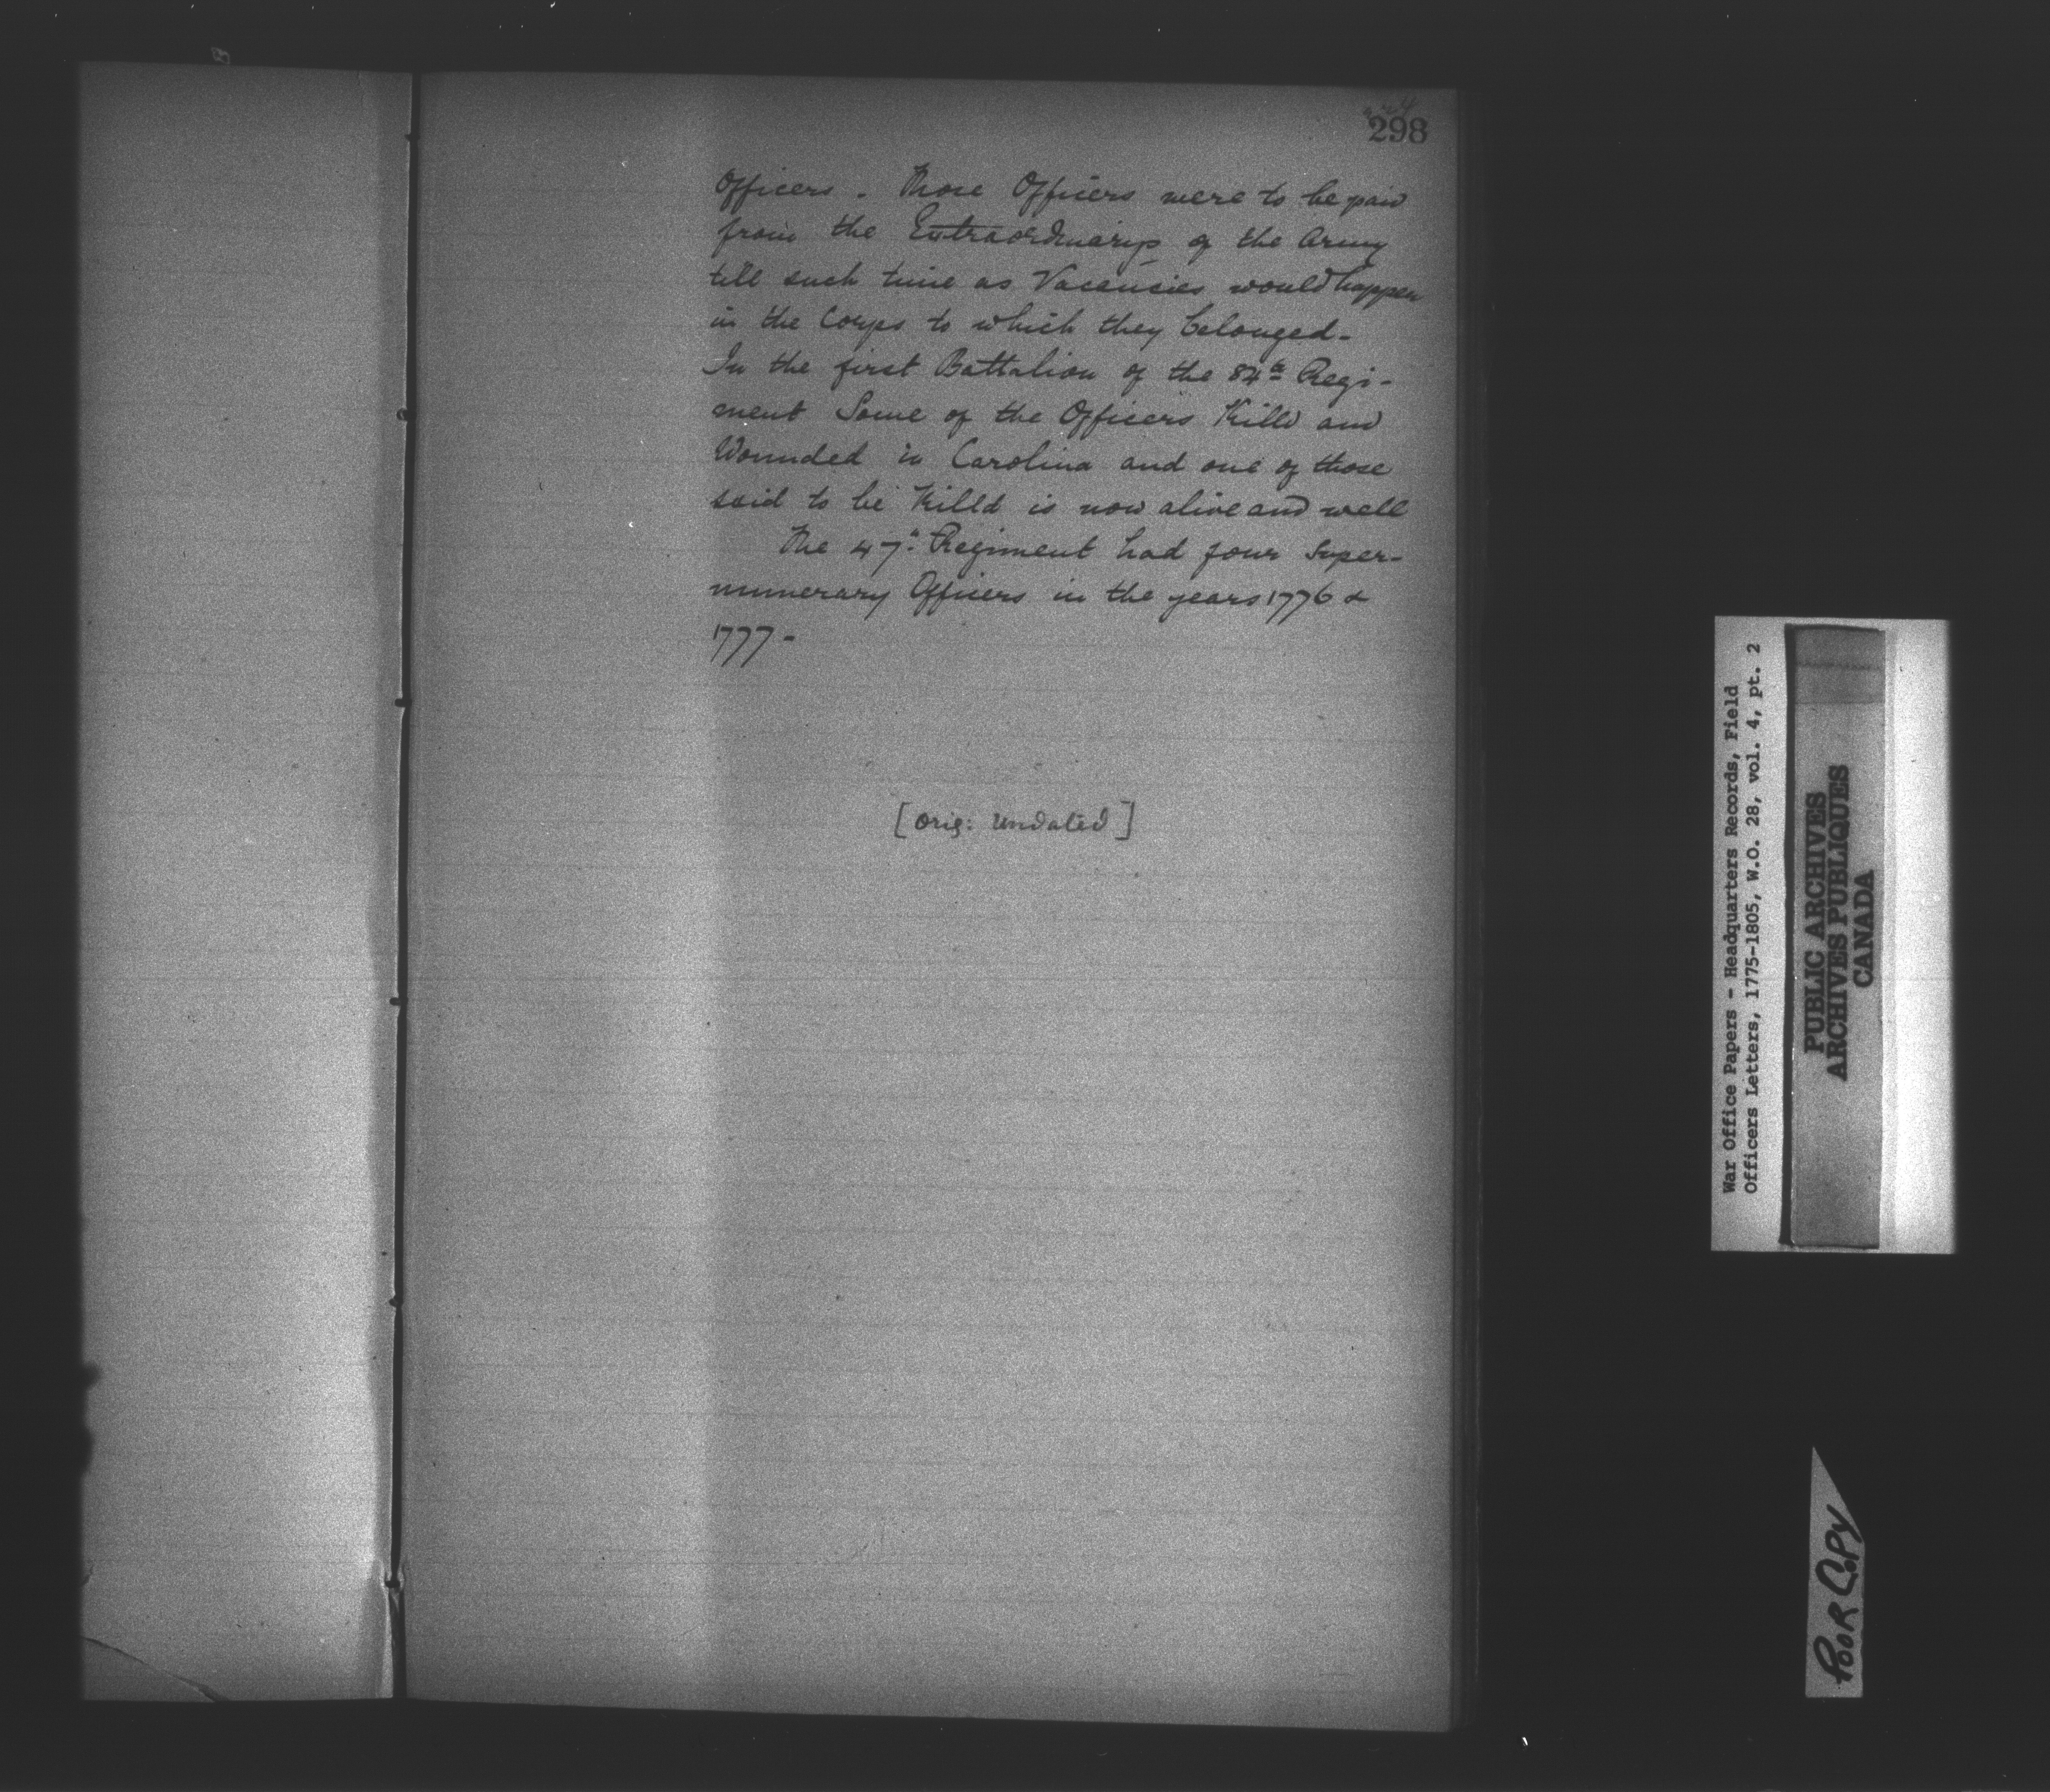 298
Officers. Those Officers were to be paid
from the Extraordinarys of the Army
till such time as Vacancies would happen
in the Corps to which they belonged-
In the first Battalion of the 84th Regi-
ment Some of the Officers Killd and
Wounded in Carolina and one of those
said to be Killd is now alive and well
The 47th Regiment had four Super-
numerary Officers in the years 1776 &
1777-
[orig: undated]
War Office Papers - Headquarters Records, Field
Officers Letters, 1775-1805, W.O. 28, vol. 4, pt. 2
PUBLIC ARCHIVES
ARCHIVES PUBLIQUES
CANADA
POOR COPY